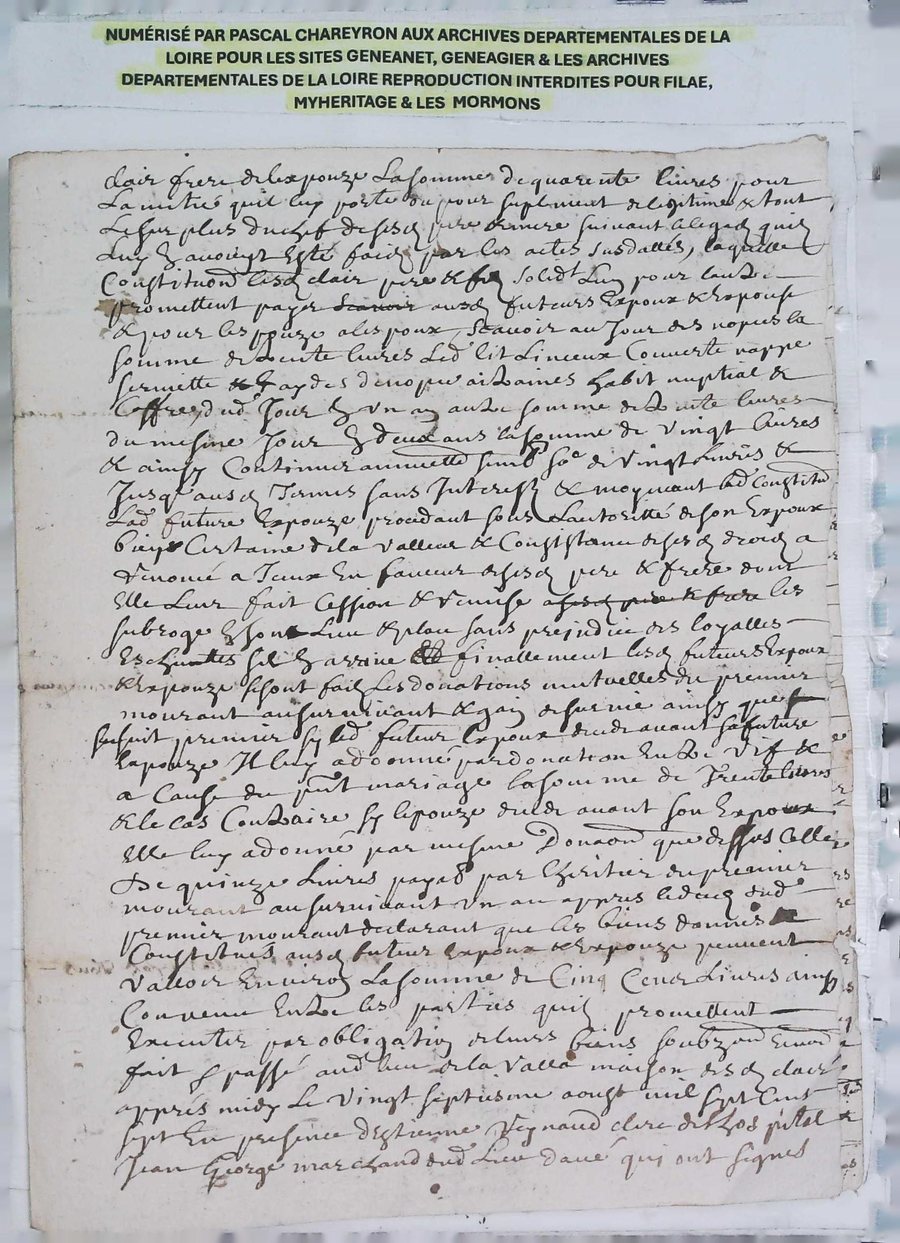 NUMÉRISÉ PAR PASCAL CHAREYRON AUX ARCHIVES DEPARTEMENTALES DE LA
LOIRE POUR LES SITES GENEANET, GENEAGIER & LES ARCHIVES
DEPARTEMENTALES DE LA LOIRE REPRODUCTION INTERDITES POUR FILAE,
MYHERITAGE & LES MORMONS
clair frere de lexpouze La somme de quarente livres pour
La moitié quil luy porte ou pour suplement de legitime & tout
Le surplus du chef de sesd pere & mere suivant le legat quilz
Luy en avoient Esté faict par les actes susdattes, laquelle
Constitution lesd clair pere & filz solidt Lun pour lautre
promettent payer ausd futeurs Expoux & Expouse
& pour lespouze a lespoux, scavoir au Jour des nopces la
somme de trente livres Led lit Linceux Couverte nappe
serviette habit nuptial &
Coffre, dud Jour en un an autre somme de trente livres
du mesme Jour en deux ans la somme de vingt livres
& ainsy Continuer annuellemt semble soe de vingt livres &
Jusqu ausd Termes sans Interestz & moyenant lad Constituon
Lad future Expouze procedant soubz Lautorité de son Expoux
bien Certaine de la valleur & Consistance de sesd droictz a
renoncé a Iceux En faveur de sesd pere & frere dont
Elle Leur fait Cession & remise les
subroge en son Lieu & place sans prejudice des loyalles
Escheuttes sil en arrive finallement lesd futeurs Expoux
& Expouze se sont faict Les donations mutuelles du premier
mourant au survivant & gain de survie ainsy que
sensuit premier sy led futeur Expoux decede avant sa future
Expouze Il luy a donné par donation Entre vif &
a Cause du pnt mariage la somme de Trente livres
& le cas Contraire sy lepouze decede avant son Expoux
Elle luy a donné par mesme Donaon que dessus Celle
De quinze Livres payab par lheritier du premier
mourant au survivant un an appres le deces dud
premier mourant declarant que les biens donnés
Constitués ausd futeur Expoux & Expouze peuvent
valloir Environ La somme de Cinq Cent Livres ainsy
Convenu Entre les parties quilz promettent
Executer par obligation de leurs biens soubz
fait & passé aud lieu de la valla maison desd clair
appres midy Le vingt septiesme aoust mil sept Cent
sept En presence dEstienne Reynaud clerc
Jean George marchand dud Lieu qui ont signés